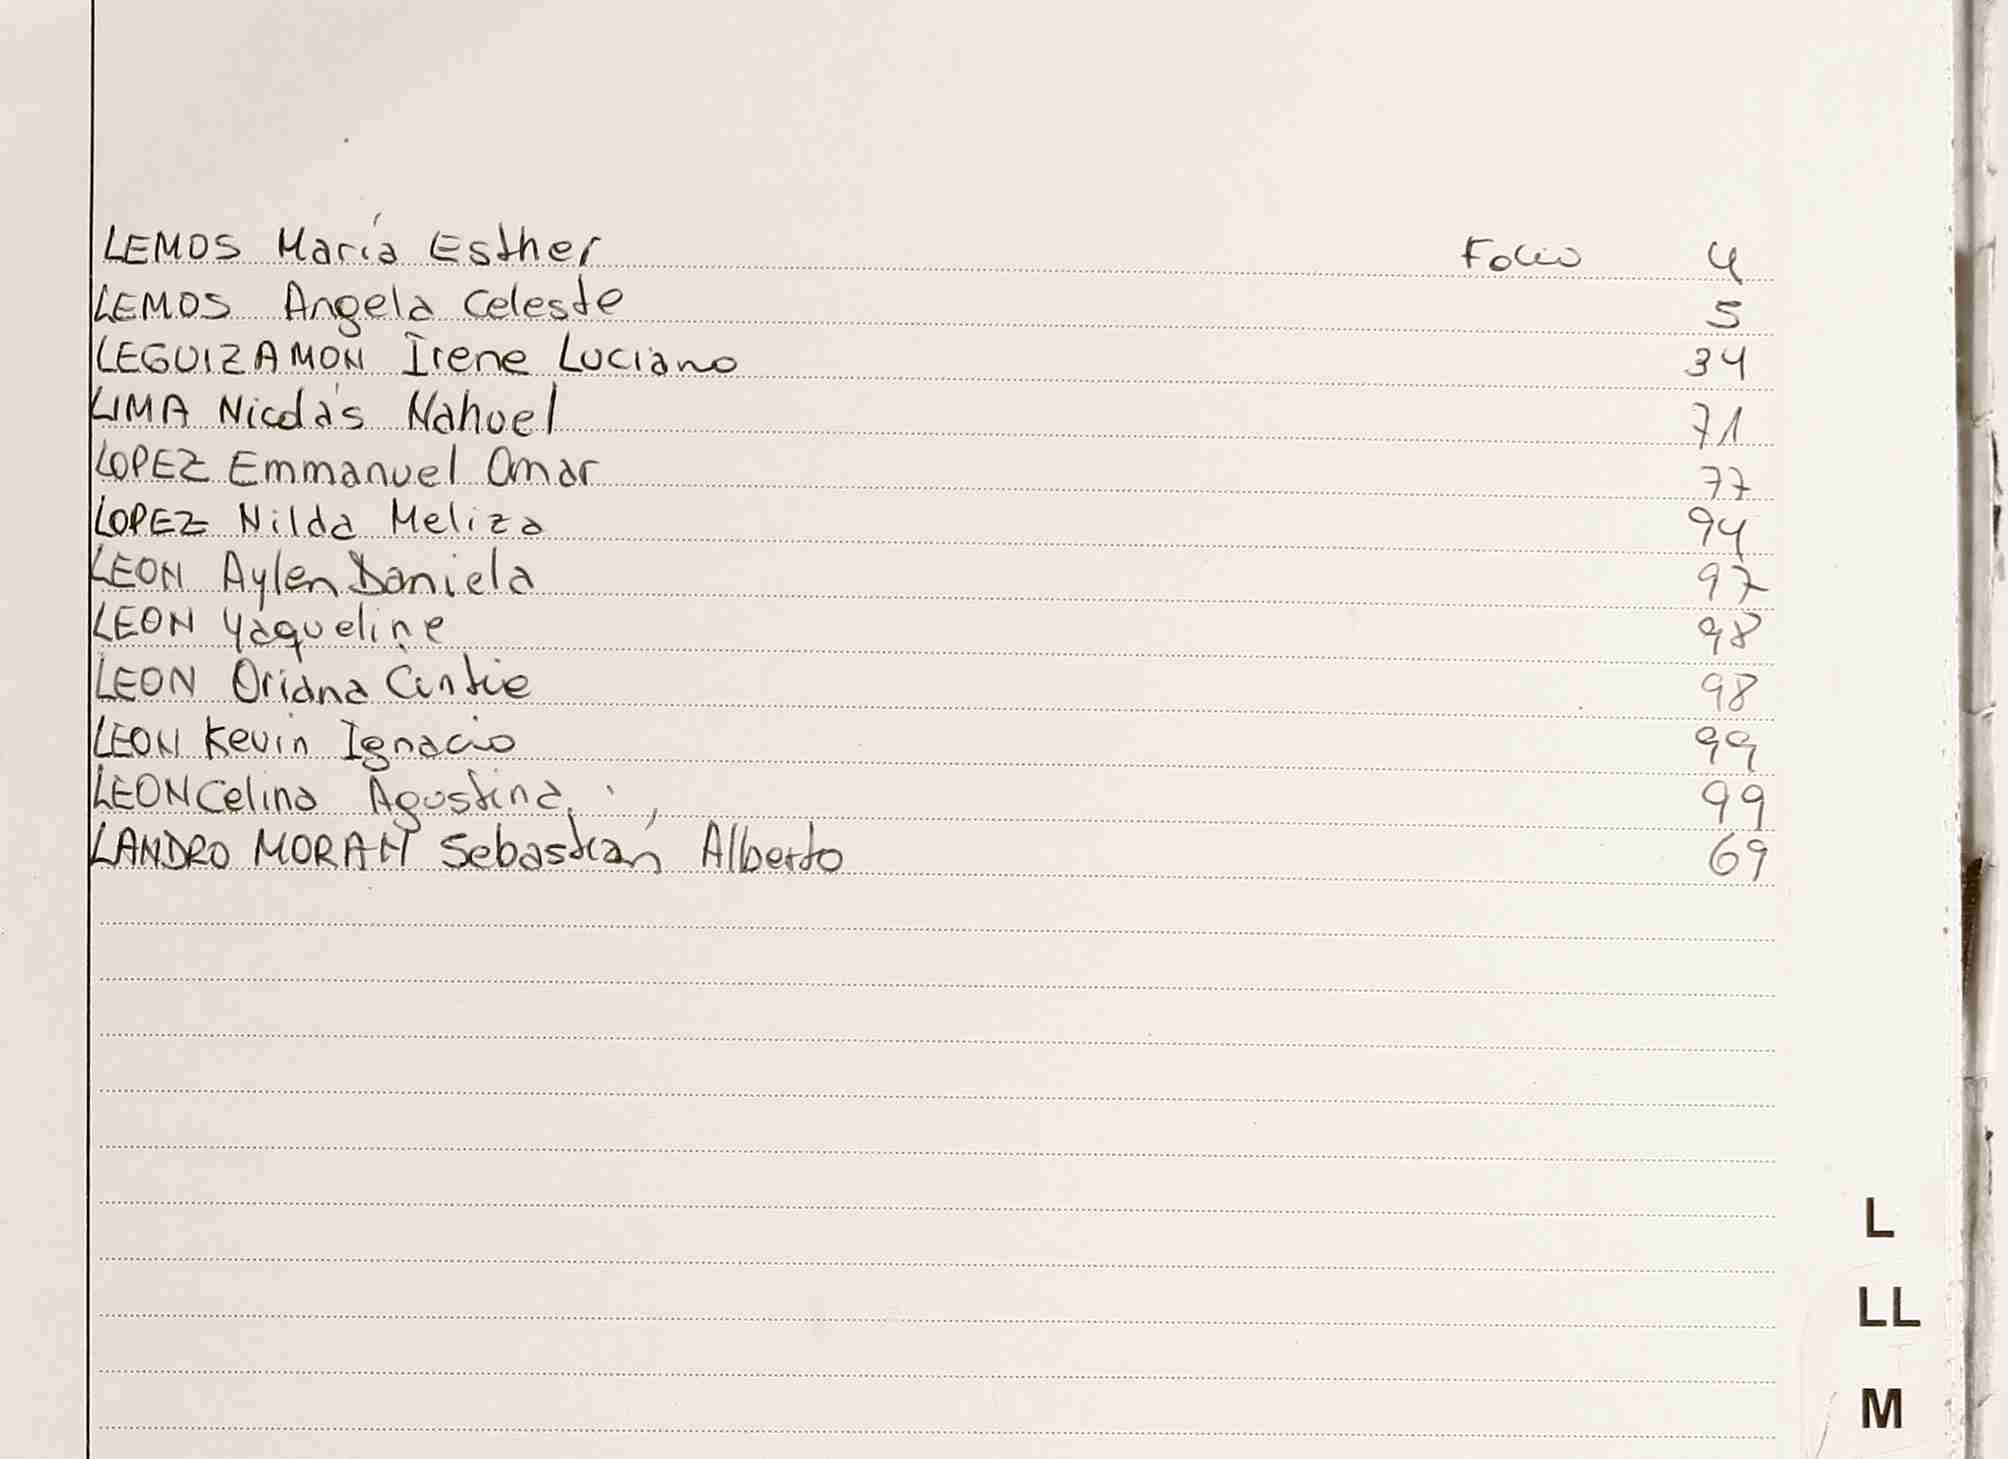 LEMOS María Esther Folio 4
LEMOS Angela Celeste 5
LEGUIZAMON Irene Luciano 34
LIMA Nicolás Nahuel 71
LOPEZ Emmanuel Omar 77
LOPEZ Nilda Meliza 94
LEON Aylen Daniela 97
LEON Yaqueline 98
LEON Oriana Cintie 98
LEON Kevin Ignacio 99
LEON Celina Agostina 99
LANDRO MORAN Sebastián Alberto 69
L
LL
M